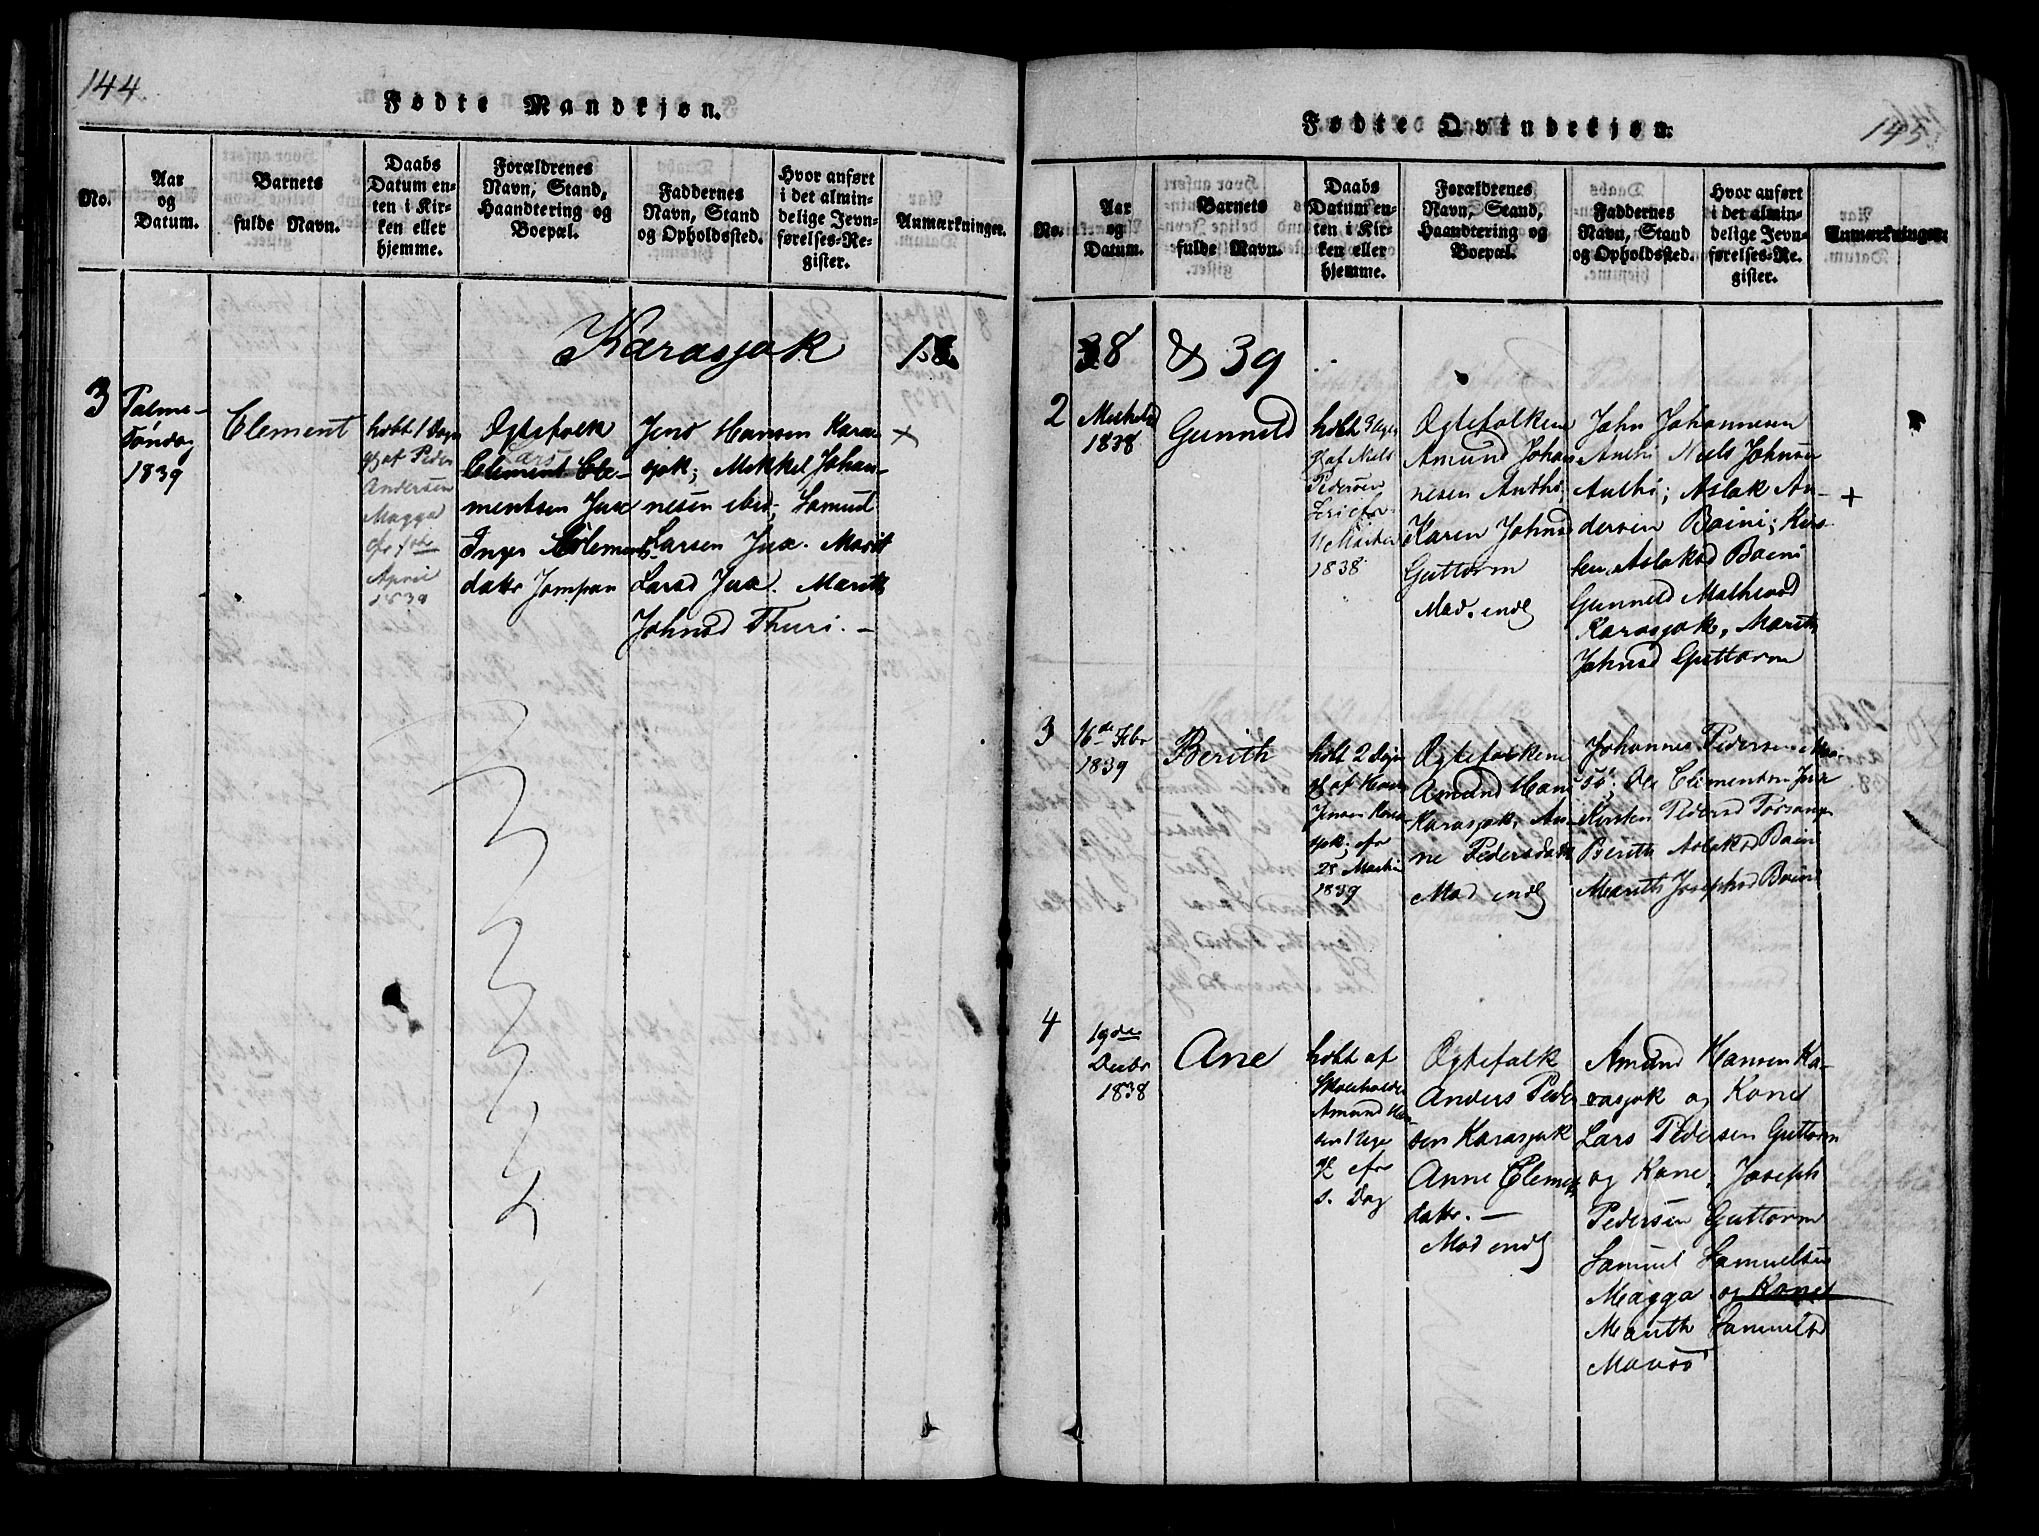 144
Fødte Mandkjøn.
No.
Aar
og
Datum.
Barnets
fulde Navn.
Daabs
Datum en-
ten i Kir-
ken eller
hjemme.
Forældrenes
Navn, Stand,
Haandtering og
Boepæl.
Faddernes
Navn, Stand
og Opholdssted.
Hvor anført
i det almin-
delige Jevn-
førelses-Re-
gister.
Anmærkninger.
Karasjok 18
3
Palme-
Søndag
1839
Clement
høbt 1 Dag
gl af Peder
Andersen
Magga
cfr 1ste
April
1839
Ægtefolk
Lars
Clement Cle-
mentsen Jux
Inger Clements
datter Jompan
Jens Hansen Karas
jok; Mikkel Johan-
nesen ibid; Samuel
Larsen Jux. Marit
Larsd Jux. Marith
Johnsd Thuri. -
+
Fødte Qvindekjøn.
145
No.
Aar
og
Datum.
Barnets
fulde Navn.
Daabs
Datum en-
ten i Kir-
ken eller
hjemme.
Forældrenes
Navn, Stand,
Haandtering og
Boepæl.
Faddernes
Navn, Stand
og Opholdssted.
Hvor anført
i det almin-
delige Jevn-
førelses-Re-
gister.
Anmærkninger.
38 & 39
2
1838
Gunneld
høbt
gl af Niels
Pedersen
cfr
1838
Ægtefolkene
Amund Johan
nesen Anthi
Karen Johnsd
Guttorm
Mod. endl
John Johannesen
Anthi Niels Johnsen
Anthi; Aslak An-
dersen Baini; Kirs-
ten Aslaksd Baini
Gunneld Mathisd
Karasjok, Marith
Johnsd Guttorm
+
3
16de Febr
1839
Berith
høbt 2 Dage
gl af Hans
Jensen Karas
jok; cfr
28 Martii
1839
Ægtefolkene
Amund Hans
Karasjok, An-
ne Pedersdatt
Mod endl
Johannes Pedersen
Ole Clementsen Jux
Kirsten Pedersd Porsanger
Berith Aslaksd Baini
Marith Josephsd Baini
4
19de
Decbr
1838
Ane
høbt af
Skoleholder
Amund Han
sen 1 Uge
gl cfr
s. Dag
Ægtefolk
Anders Peder
sen Karasjok
Anne Clements
datter. -
Mod endl
Amund Hansen Ka-
rasjok og Kone
Lars Pedersen Guttorm
og Kone, Joseph
Pedersen Guttorm
Samuel Samuelsen
Magga og Kone
Marith Samuelsd